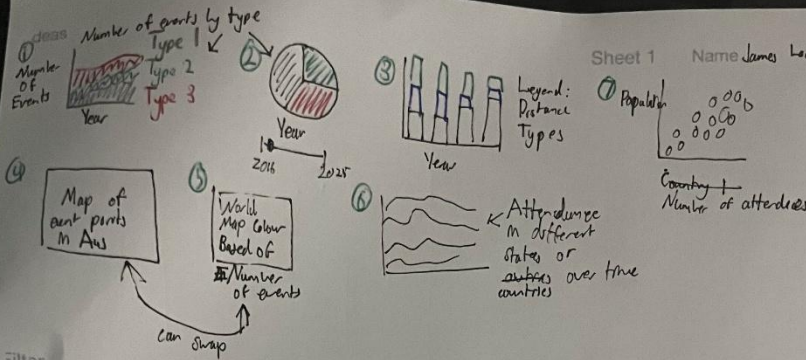 ideas
Number of events by type
①
Number
of
Events
Type 1
Type 2
Type 3
Year
②
Year
2016
2025
③
Legend:
Distance
Types
Year
Sheet 1
Name James
⑦
Population
Country 1
Number of attendees
④
Map of
event points
in Aus
⑤
World
Map Colour
Based of
Number
of events
can swap
⑥
Attendance
in different
states or
over time
countries